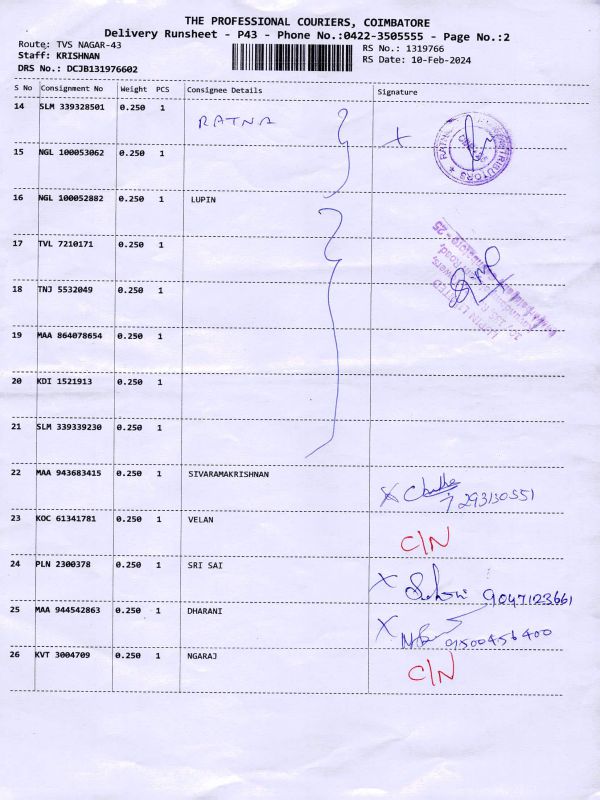 THE PROFESSIONAL COURIERS, COIMBATORE
Delivery Runsheet - P43 - Phone No.:0422-3505555 - Page No.:2
Route: TVS NAGAR-43
RS No.: 1319766
Staff: KRISHNAN
RS Date: 10-Feb-2024
DRS No.: DCJB131976602
S No Consignment No Weight PCS Consignee Details Signature
14 SLM 339328501 0.250 1 RATNA
15 NGL 100053062 0.250 1
16 NGL 100052882 0.250 1 LUPIN
17 TVL 7210171 0.250 1
18 TNJ 5532049 0.250 1
19 MAA 864078654 0.250 1
20 KDI 1521913 0.250 1
21 SLM 339339230 0.250 1
22 MAA 943683415 0.250 1 SIVARAMAKRISHNAN
7293130551
23 KOC 61341781 0.250 1 VELAN C/N
24 PLN 2300378 0.250 1 SRI SAI
9047123661
25 MAA 944542863 0.250 1 DHARANI
9500456400
26 KVT 3004709 0.250 1 NGARAJ C/N